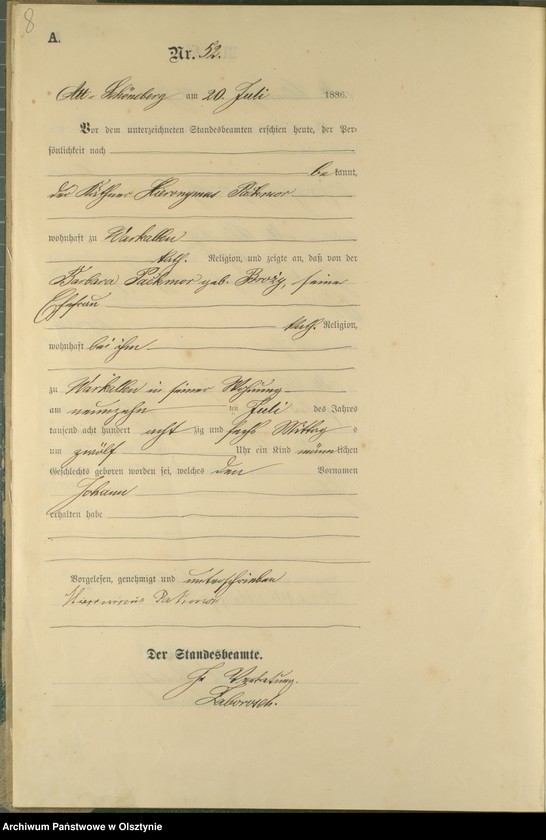 8
A.
Nr. 52.
Alt-Schöneberg am 20. Juli 1886.
Vor dem unterzeichneten Standesbeamten erschien heute, der Per-
sönlichkeit nach
bekannt,
der Käthner Hieronymus Packmor
wohnhaft zu Warkallen
kath. Religion, und zeigte an, daß von der
Barbara Packmor geb. Broży, seiner
Ehefrau
kath. Religion,
wohnhaft bei ihm
zu Warkallen in seiner Wohnung
am neunzehn ten Juli des Jahres
tausend acht hundert acht zig und sechs Mittag s
um zwölf Uhr ein Kind männlichen
Geschlechts geboren worden sei, welches den Vornamen
Johann
erhalten habe
Vorgelesen, genehmigt und unterschrieben
Der Standesbeamte.
In Vertretung.
Zaborosch.
Archiwum Państwowe w Olsztynie